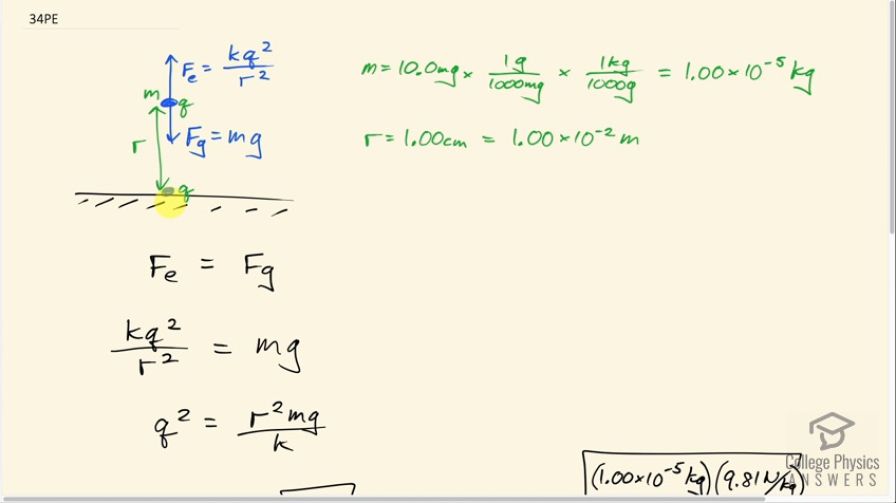 34PE
Fe = kq²/r²
m = 10.0mg × 1g/1000mg × 1kg/1000g = 1.00 × 10⁻⁵ kg
m q
r Fg = mg
r = 1.00cm = 1.00 × 10⁻² m
q
Fe = Fg
kq²/r² = mg
q² = r²mg/k
(1.00×10⁻⁵ kg)(9.81 N/kg)
College Physics
ANSWERS